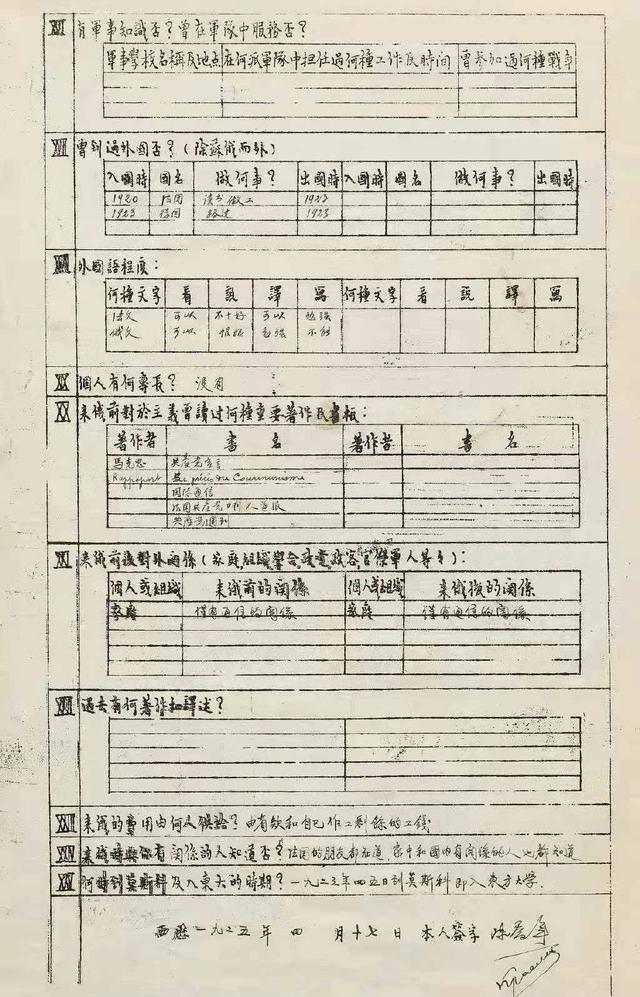 XVI 有軍事知識否？曾在軍隊中服務否？
軍事學校名稱及地点 在何派軍隊中担任過何種工作及時間 曾參加過何種戰爭
XVII 曾到過外國否？（除蘇俄而外）
入國時 國名 做何事？ 出國時 入國時 國名 做何事？ 出國時
1920 法国 读书做工 1923
1923 德国 路过 1923
XVIII 外國語程度：
何種文字 看 説 譯 寫 何種文字 看 説 譯 寫
法文 可以 不十好 可以 勉強
俄文 可以 不能
XIX 個人有何專長？ 没有
XX 来俄前對於主義曾讀过何種重要著作及書板：
著作者 書名 著作者 書名
馬克思 共產党宣言
Rappoport précis du Communisme
国际通信
法国共產党
共產党週刊
XXI 来俄前後對外関係（家庭組織學会政党政客官僚軍人等等）：
個人或組織 来俄前的関係 個人或組織 来俄後的関係
家庭 僅有通信的関係 家庭 僅有通信的関係
XXII 過去有何著作和譯述？
XXIII 来俄的費用由何人供給？ 由省欽和自己作工剩餘的工錢
XXIV 来俄時與你有関係的人知道否？ 法国的朋友都知道 家中和國内有関係的人也都知道
XXV 何時到莫斯科及入東大的時期？ 一九二三年四五日到莫斯科即入東方大学.
西歷一九二五年 四 月十七日 本人簽字 陈